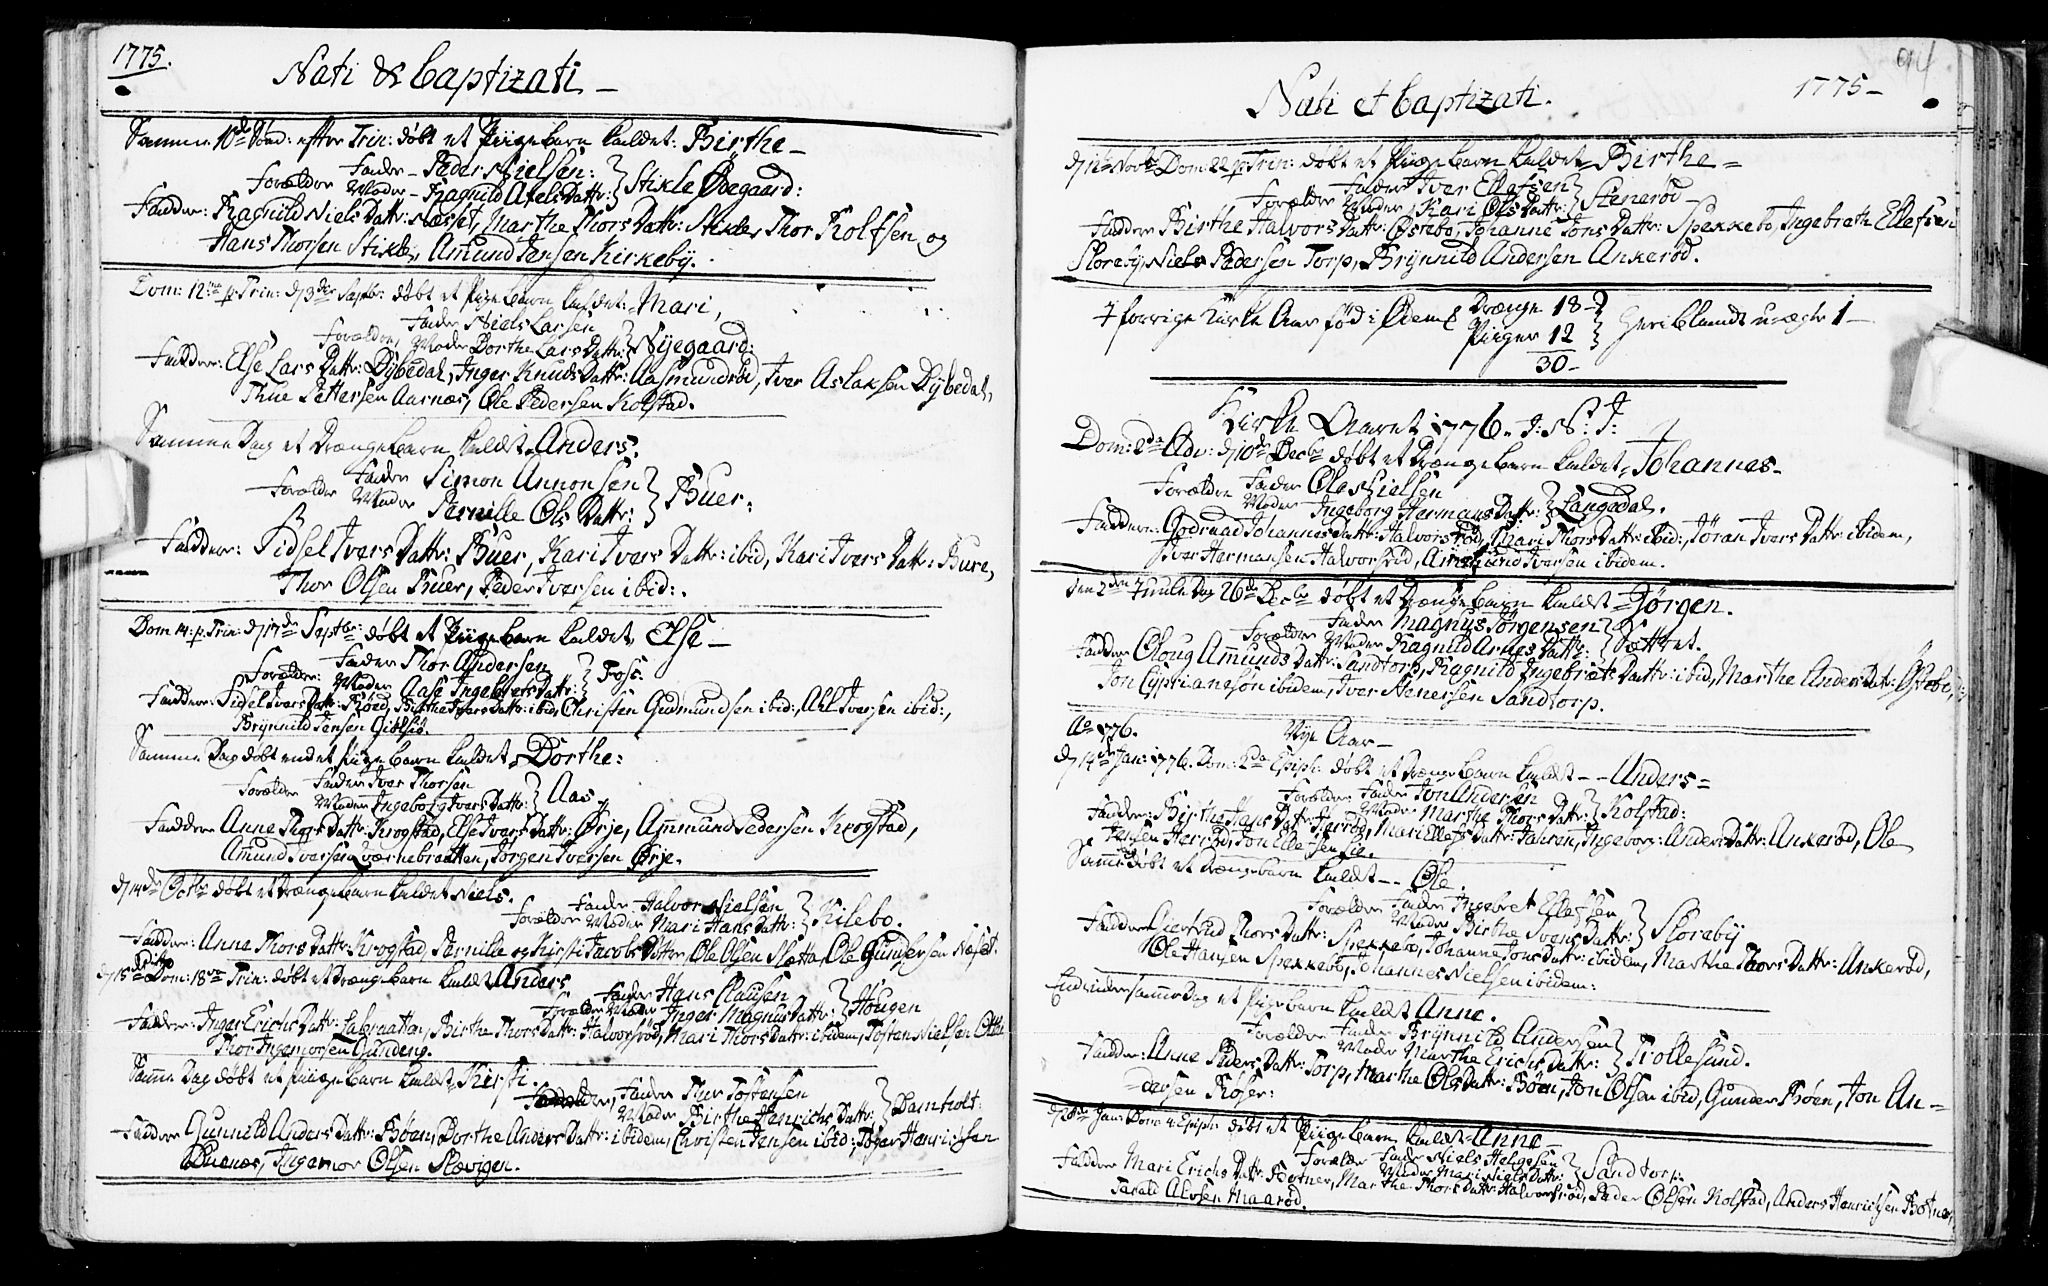 1775.
Nati & baptizati –
Samme 10de Sønd: efter Trin: døbt et Piigebarn kaldet: Birthe –
Forældre Fader – Peder Nielsen: } Stikle Ødegaard:
Moder – Ragnild Axels Dattr:
Faddere: Ragnild Niels Dattr: Næset, Marthe Thors Dattr: Stikle, Thor Rolfsen og
Hans Thorsen Stikle, Amund Jensen Kirkebÿ.
Dom: 12: p: Trin: d: 3die Septbr: døbt et Pigebarn kaldet: Mari,
Forældre, Fader Niels Larsen } Nyegaard:
Moder Dorthe Lars Dattr:
Faddere: Else Lars Dattr: Dybedal, Inger Knuds Dattr: Aasmundrød, Iver Aslaksen Dybedal,
Thue Pettersen Aarnæs, Ole Pedersen Kolstad.
Samme Dag et Drængebarn kaldet Anders.
Forældre Fader Simon Annonsen } Buer:
Moder Pernille Ols Dattr:
Faddere: Sidsel Ivers Dattr: Buer, Kari Ivers Dattr: ibid, Kari Ivers Dattr: Bure,
Thor Olsen Buer, Peder Iversen ibid:.
Dom 14: p: Trin: d: 17de Septbr: døbt et Piigebarn kaldet Else –
Forældre: Fader Thor Andersen } Foss.
Moder Aase Ingebrets Dattr:
Faddere: Sidsel Ivers Dattr: Røed, Birthe Ivers Dattr: ibid, Christen Gudmundsen ibid:, Axel Iversen ibid:,
Brÿnnild Jensen
Samme Dag døbt end et Piigebarn kaldet Dorthe:
Forældre Fader Iver Thorsen } Aas.
Moder Ingeborg Ivers Dattr:
Faddere Anne Thors Dattr: Krogstad, Else Ivers Dattr: Ørje, Ammund Pedersen Krogstad,
Amund Iversen Qværnebraatten, Jørgen Iversen Ørje.
d: 14de Octbr døbt et Drængebarn kaldet Niels.
Forældre Fader Halvor Nielsen } Kilebo.
Moder Mari Hans Dattr:
Faddere: Anne Thors Dattr: Krogstad, Pernille og Kirsti Jacobs Døttre, Ole Olsen Sletta, Ole Gundersen Næset.
d: 15de ditto Dom: 18 Trin: døbt et Drængebarn kaldet Anders
Forældre Fader Hans Clausen } Hougen
Moder Inger Magnus Dattr:
Faddere: Inger Erichs Dattr: Labraaten, Birthe Thors Dattr: Halvorsrød, Mari Thors Dattr: ibidem, Tosten Nielsen
Thor Ingemorsen Gundeng.
Samme Dag døbt et Piigebarn kaldet Kirsti.
Forældre, Fader Thor Tostensen } Damholt:
Moder Birthe Henrichs Dattr:
Faddere Gunnild Anders Dattr: Bøen, Dorthe Anders Dattr: ibidem, Christen Jensen ibid:, Henrichsen
Buenæs, Ingemor Olsen Slævigen.
94
1775 –
Nati et baptizati.
d: 12te Novbr Dom: 22 p: Trin: døbt et Piigebarn kaldet Birthe =
Forældre Fader Iver Ellefsen } Stenerød –
Moder Kari Ols Dattr:
Faddere Birthe Halvors Dattr: Østebø, Johanne Jons Dattr: Spekkebo, Ingebreth Ellefsen
Slorebÿ, Niels Pedersen Torp, Brÿnnild Andersen Ankerød.
I forrige Kirke Aar fød i Ødems { Drænge 18 – } heriblandt uægte 1 –
Piiger 12
30 –
Kirke Aaret 1776. J: N: J:
Dom: 2da Adv: d: 10de Decbr døbt et Drængebarn kaldet Johannes –
Forældre Fader Ole Nielsen } Langedal.
Moder Ingeborg Hermans Dattr:
Faddere: Johannes Dattr: Halvorsrød, Mari Thors Dattr: ibid:, Jøran Ivers Dattr: ibidem,
Iver Hermansen Halvorsrød, Ammund Iversen ibidem.
den 2den Juule Dag 26de Decbr døbt et Drængebarn kaldet Jørgen.
Forældre Fader Magnus Jørgensen } Sættet.
Moder Ragnild Arnes Dattr:
Faddere Oloug Amunds Dattr: Sandtorp, Ragnild Ingebrets Dattr: ibid, Marthe Anders Datr: Østebø,
Jon Cÿpriansøn ibidem, Iver Stenersen Sandtorp.
Ao 1776. Nye Aar –
d: 14de Jan: 1776. Dom: 2da Epiph: døbt et Drængebarn kaldet – – Anders =
Forældre Fader Jon Andersen } Kolstad:
Moder Marthe Thors Dattr:
Faddere: Birthe Hans Dattr: Herrød, Mari Ellefs Dattr: Jahren, Ingeborg Anders Dattr: Ankerød, Ole
Jensen Herrød, Jon Ellefsen Lie.
Samme døbt et Drængebarn kaldet – – Ole.
Forældre Fader Ingebret Ellefsen } Slorebÿ
Moder Birthe Svens Dattr:
Faddere Giertrud Thors Dattr: Spekkebo, Johanne Jons Dattr: ibidem, Marthe Thors Dattr: Ankerød,
Ole Hansen Spekkebo, Johannes Nielsen ibidem:
Endvidere samme Dag et Pigebarn kaldet Anne.
Forældre Fader Brÿnnild Andersen } Trollesund.
Moder Marthe Erichs Dattr:
Faddere: Anne Peders Dattr: Torp, Marthe Ols Dattr: Bøen, Jon Olsen ibid, Gunder Bøen, Jon An=
=dersen Røser:
d: 28de Jan: Dom: 4 Epiph: døbt et Piigebarn kaldet Anne –
Forældre Fader Niels Helgesen } Sandtorp:
Moder Mari Niels Dattr:
Faddere Mari Erichs Dattr: Botner, Marthe Thors Dattr: Halvorsrød, Peder Olsen Kolstad, Anders Henrichsen Botner,
Tarald Alvsen Haarød.